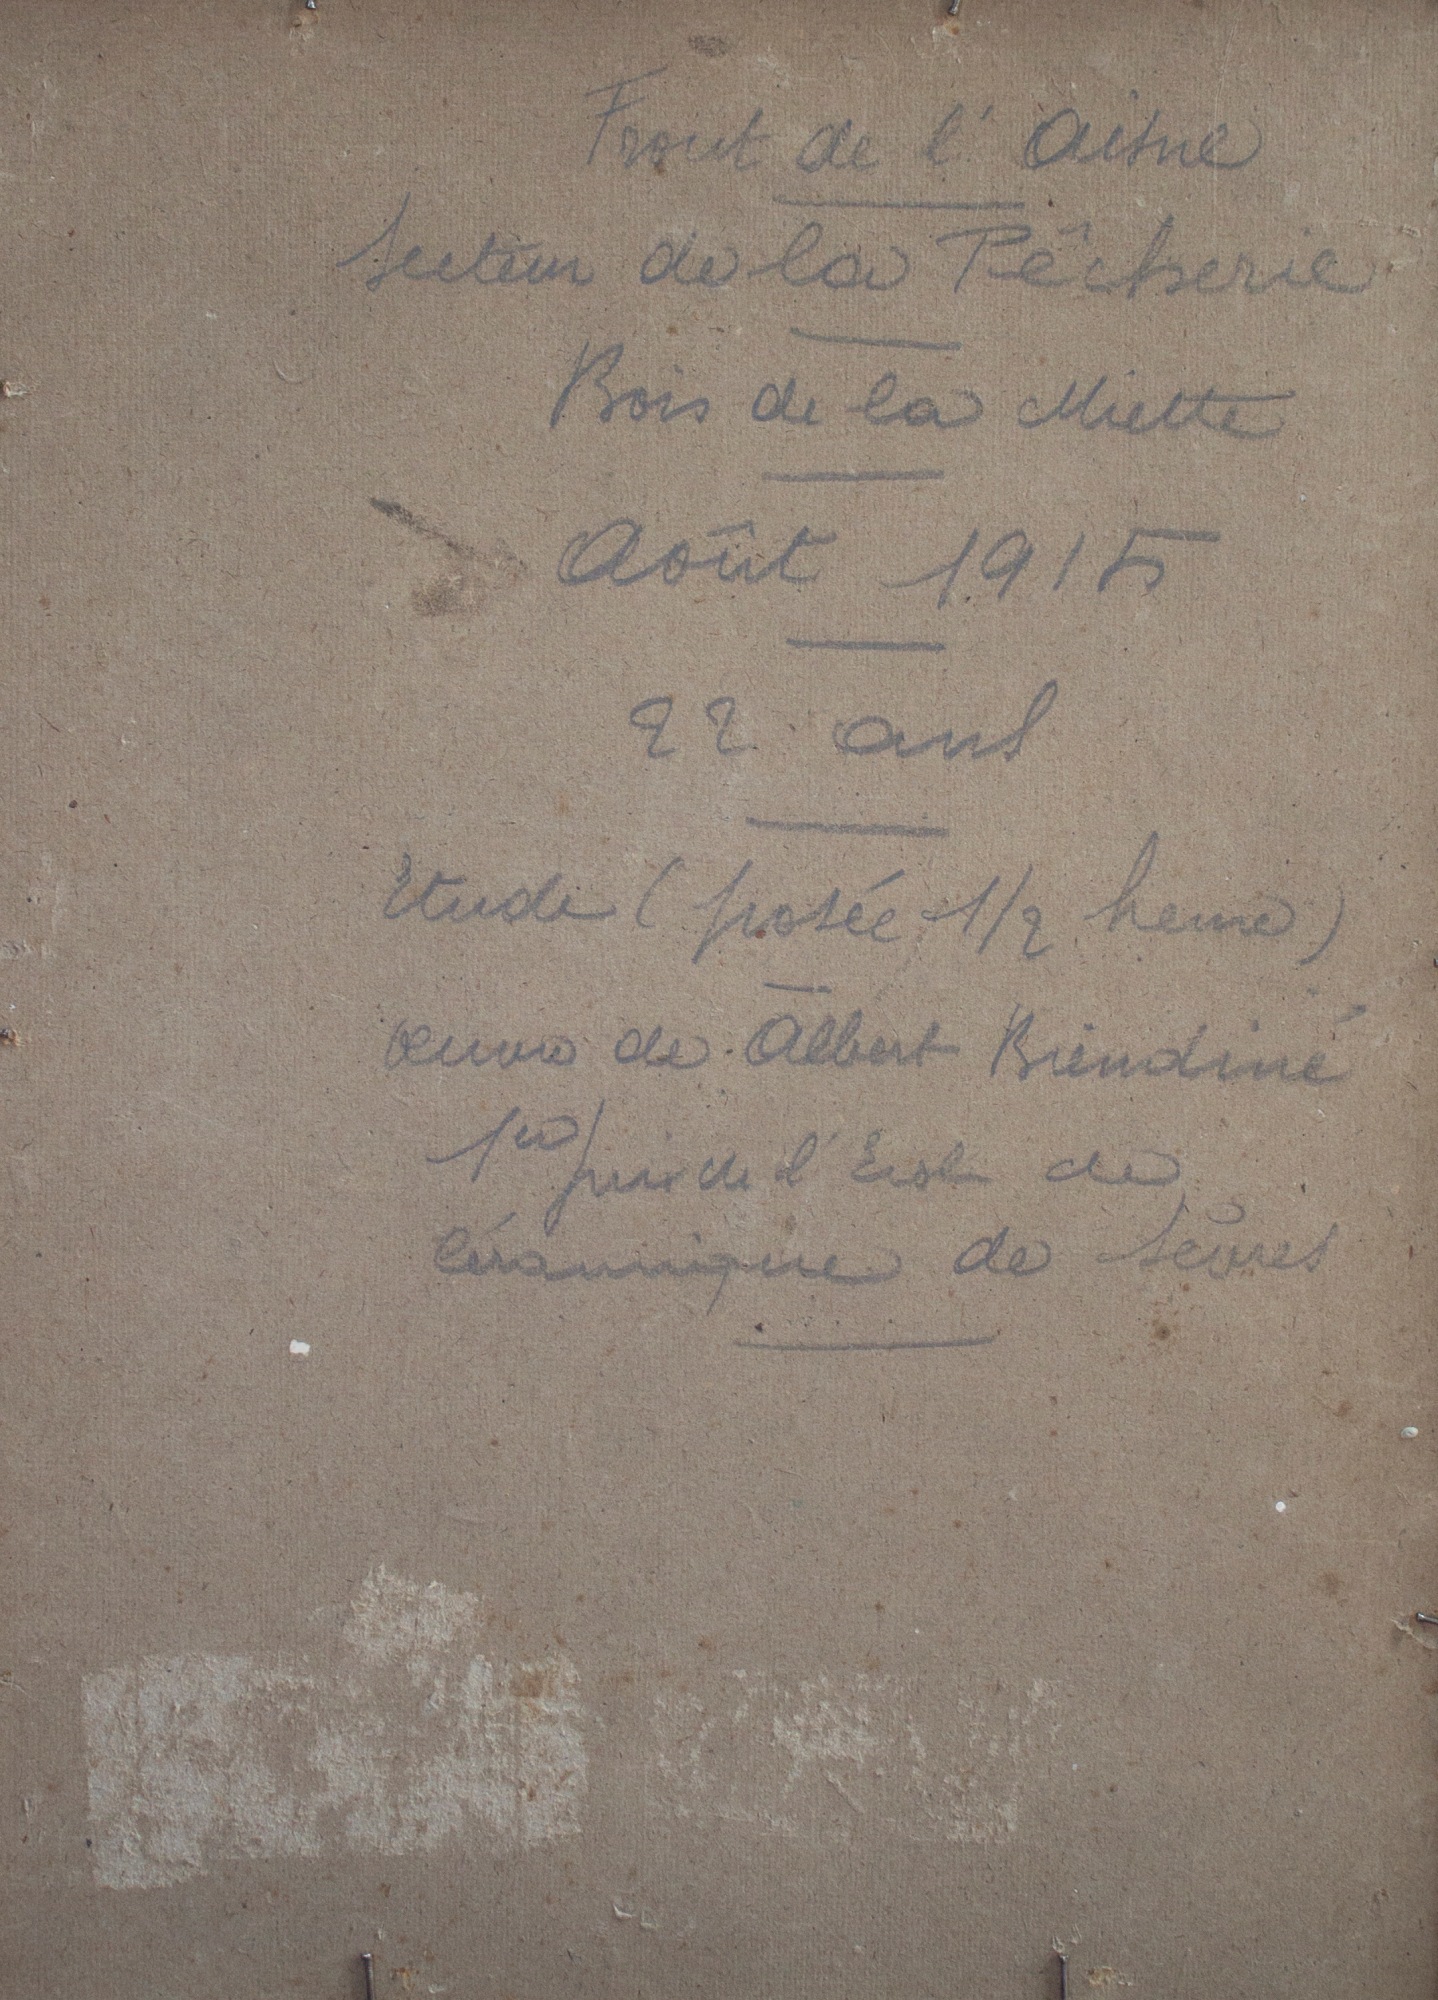 Front de l'Aisne
Secteur de la Pêcherie
Bois de la Miette
Août 1915
22 ans
Etude (posée 1/2 heure)
Œuvre de Albert
1er prix de l'Ecole de
Céramique de Sèvres